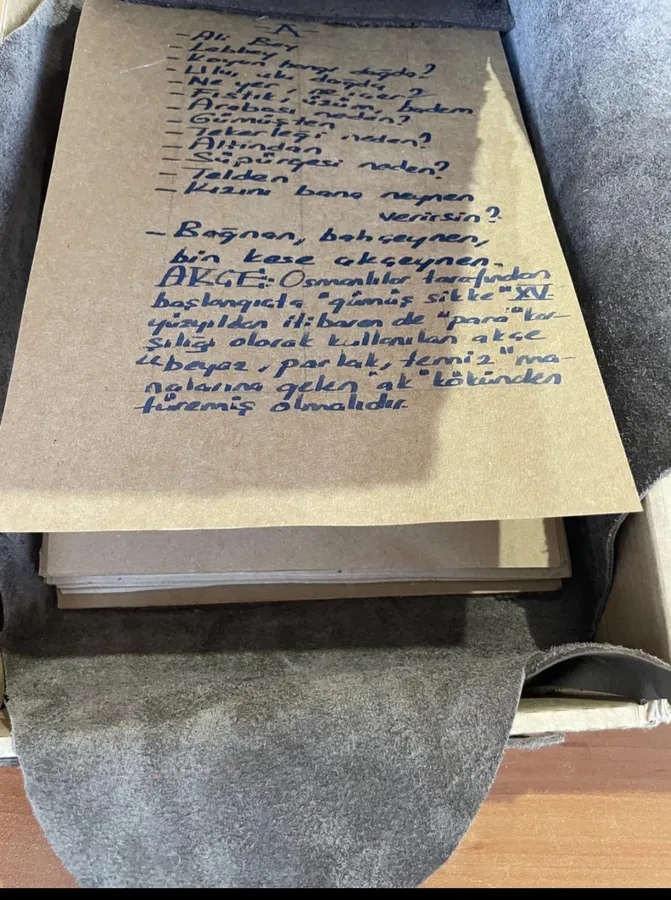 A
- Ali Bey
- Lebbey
- Koyun hangi dağda?
- Ulu, ulu dağda
- Ne yer, ne içer?
- Fıstık, üzüm, badem
- Arabası neden?
- Gümüşten
- Tekerleği neden?
- Altından
- Süpürgesi neden?
- Telden
- Kızını bana neynen
verirsin?
- Bağnan, bahçeynen,
bin kese akçeynen.
AKÇE: Osmanlılar tarafından
başlangıçta "gümüş sikke" XV.
yüzyıldan itibaren de "para" kar-
şılığı olarak kullanılan akçe
"beyaz, parlak, temiz" ma-
nalarına gelen "ak" kökünden
türemiş olmalıdır.